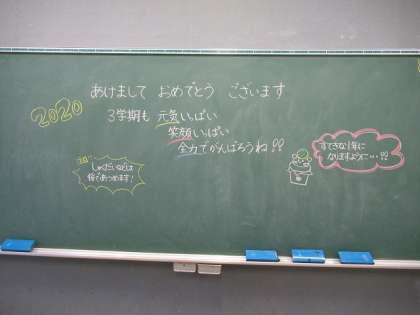 2020
あけまして おめでとう ございます
3学期も 元気いっぱい
笑顔いっぱい
全力でがんばろうね!!
しゅくだいなどは
後であつめます!
すてきな1年に
なりますように…!!